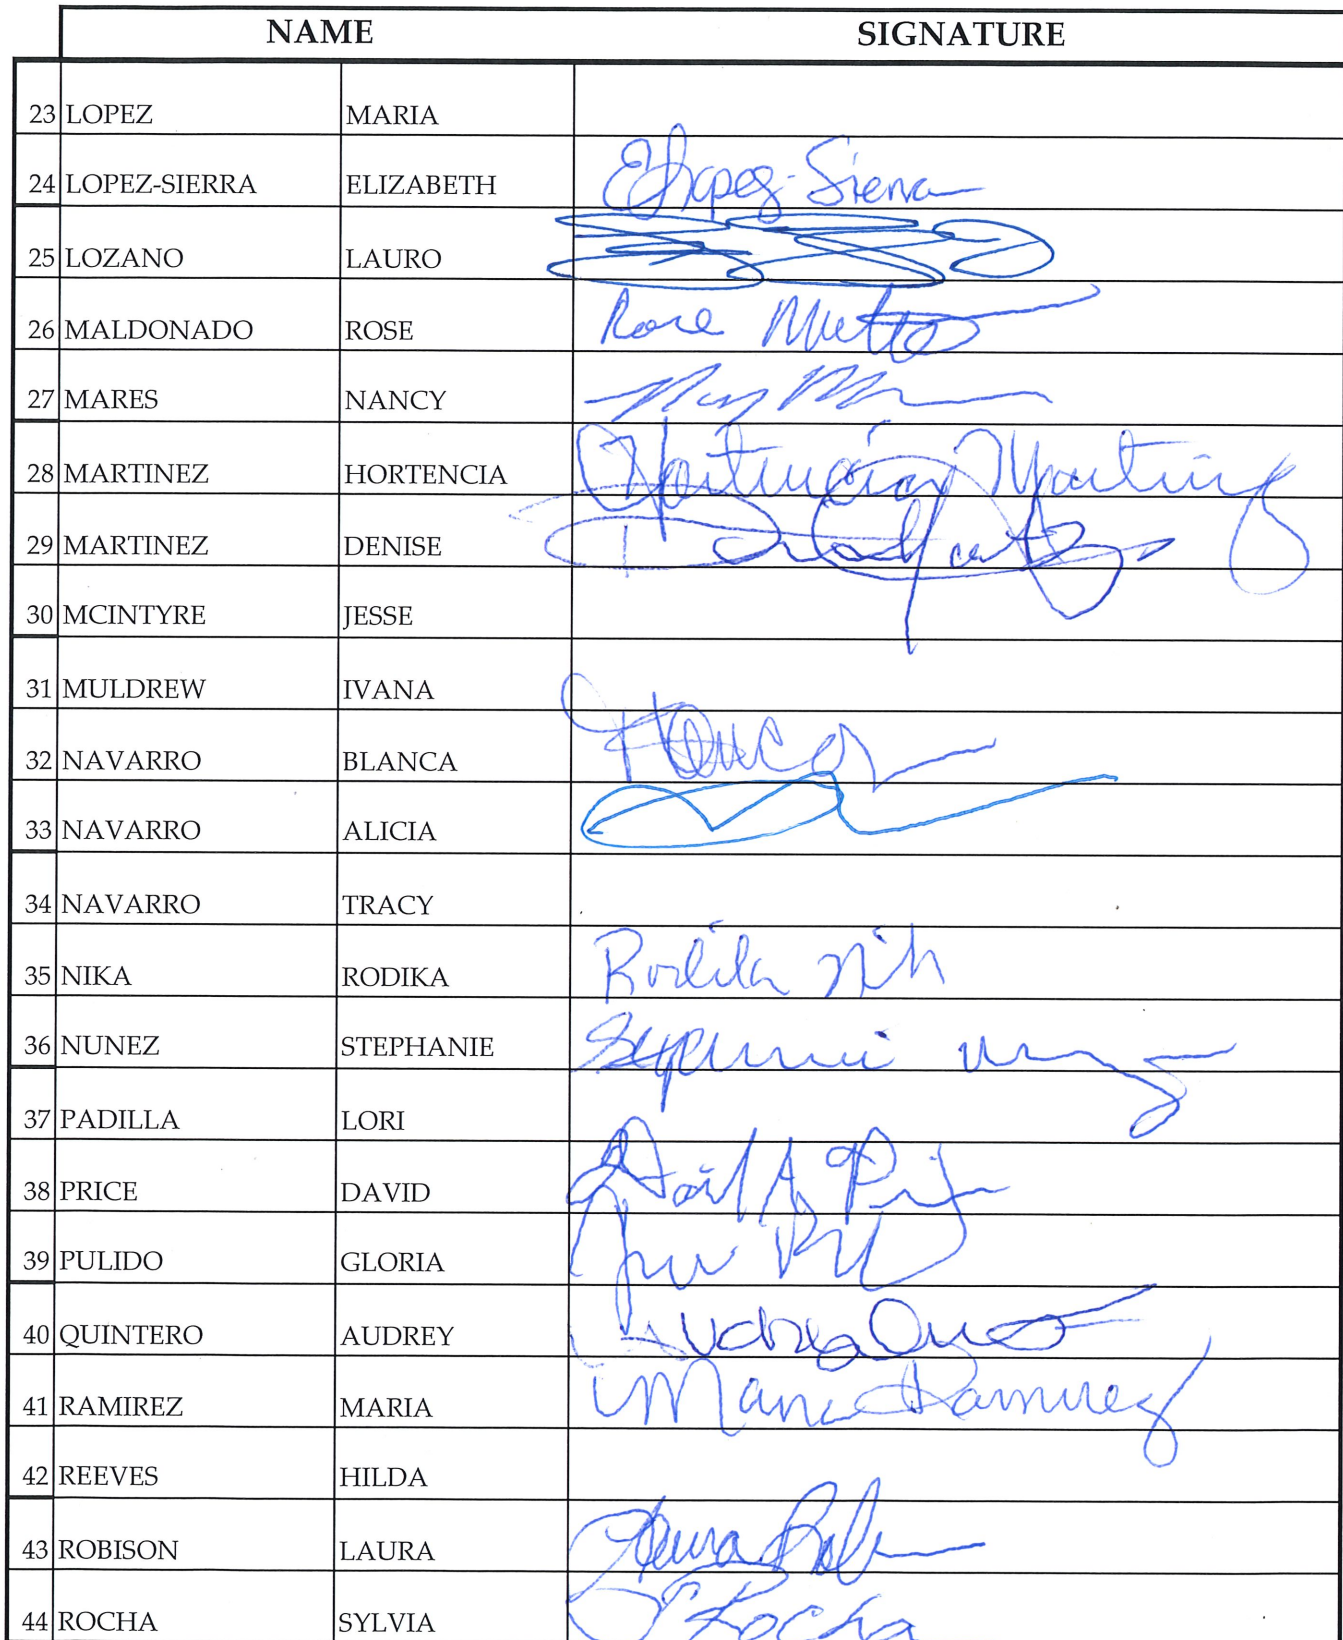 NAME SIGNATURE
23 LOPEZ MARIA
24 LOPEZ-SIERRA ELIZABETH ELopez-Sierra
25 LOZANO LAURO
26 MALDONADO ROSE Rose
27 MARES NANCY
28 MARTINEZ HORTENCIA Hortencia Martinez
29 MARTINEZ DENISE
30 MCINTYRE JESSE
31 MULDREW IVANA
32 NAVARRO BLANCA
33 NAVARRO ALICIA
34 NAVARRO TRACY
35 NIKA RODIKA Rodika Nika
36 NUNEZ STEPHANIE
37 PADILLA LORI
38 PRICE DAVID
39 PULIDO GLORIA
40 QUINTERO AUDREY
41 RAMIREZ MARIA Maria Ramirez
42 REEVES HILDA
43 ROBISON LAURA Laura
44 ROCHA SYLVIA Rocha